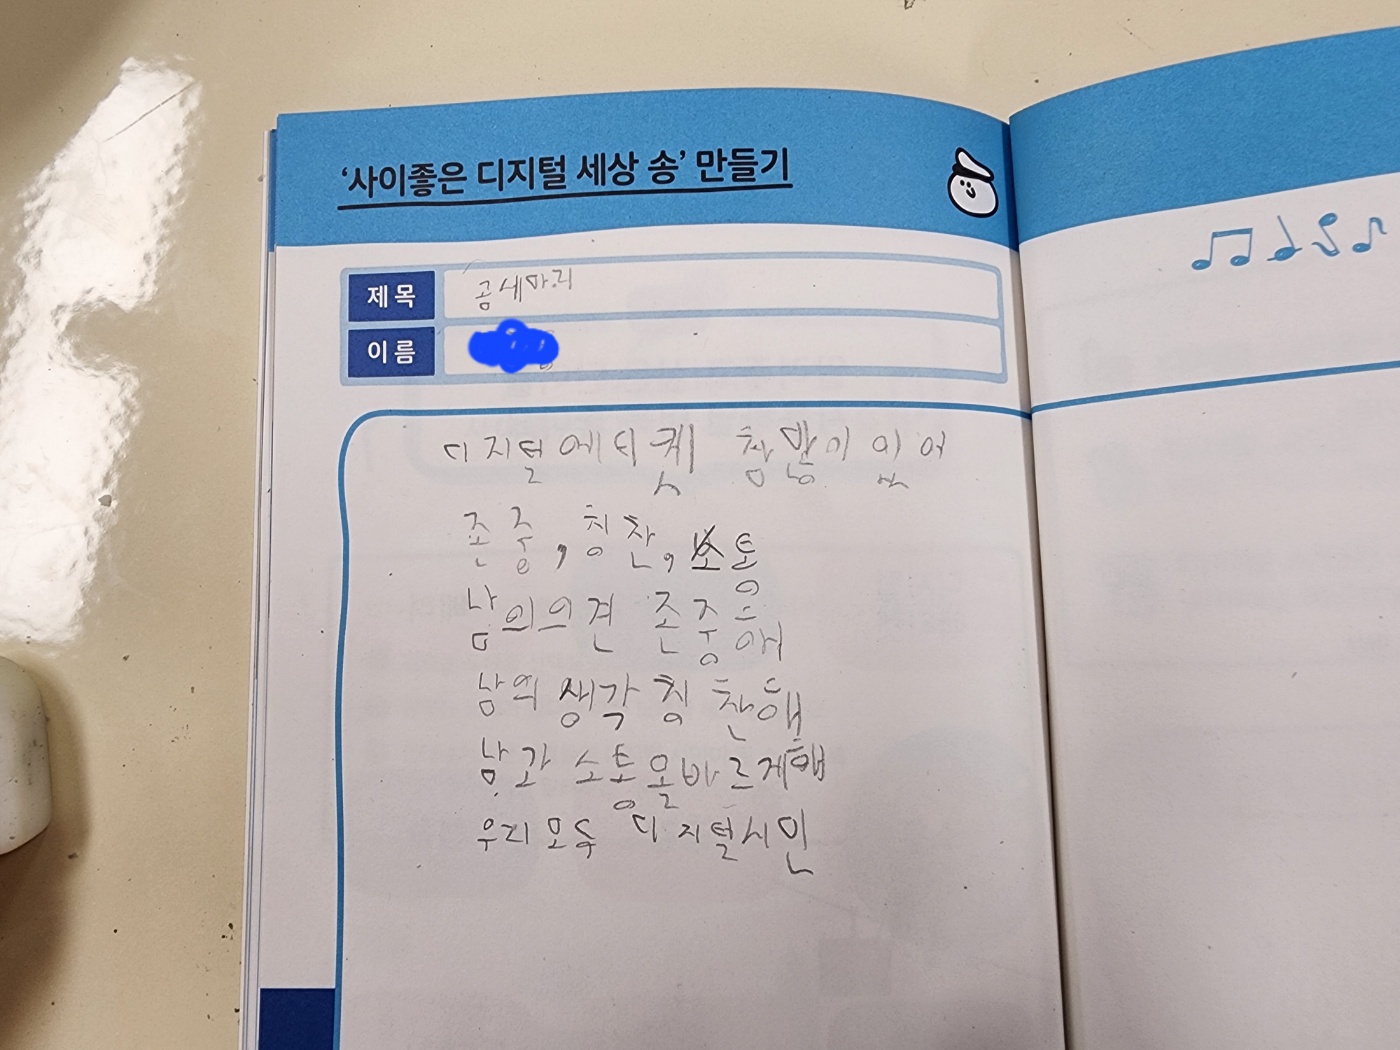 ‘사이좋은 디지털 세상 송’ 만들기
제목 곰세마리
이름
디지털에티켓 참많이 있어
존중, 칭찬, 소통
남의의견 존중해
남의 생각 칭찬해
남과 소통올바르게해
우리모두 디지털시민